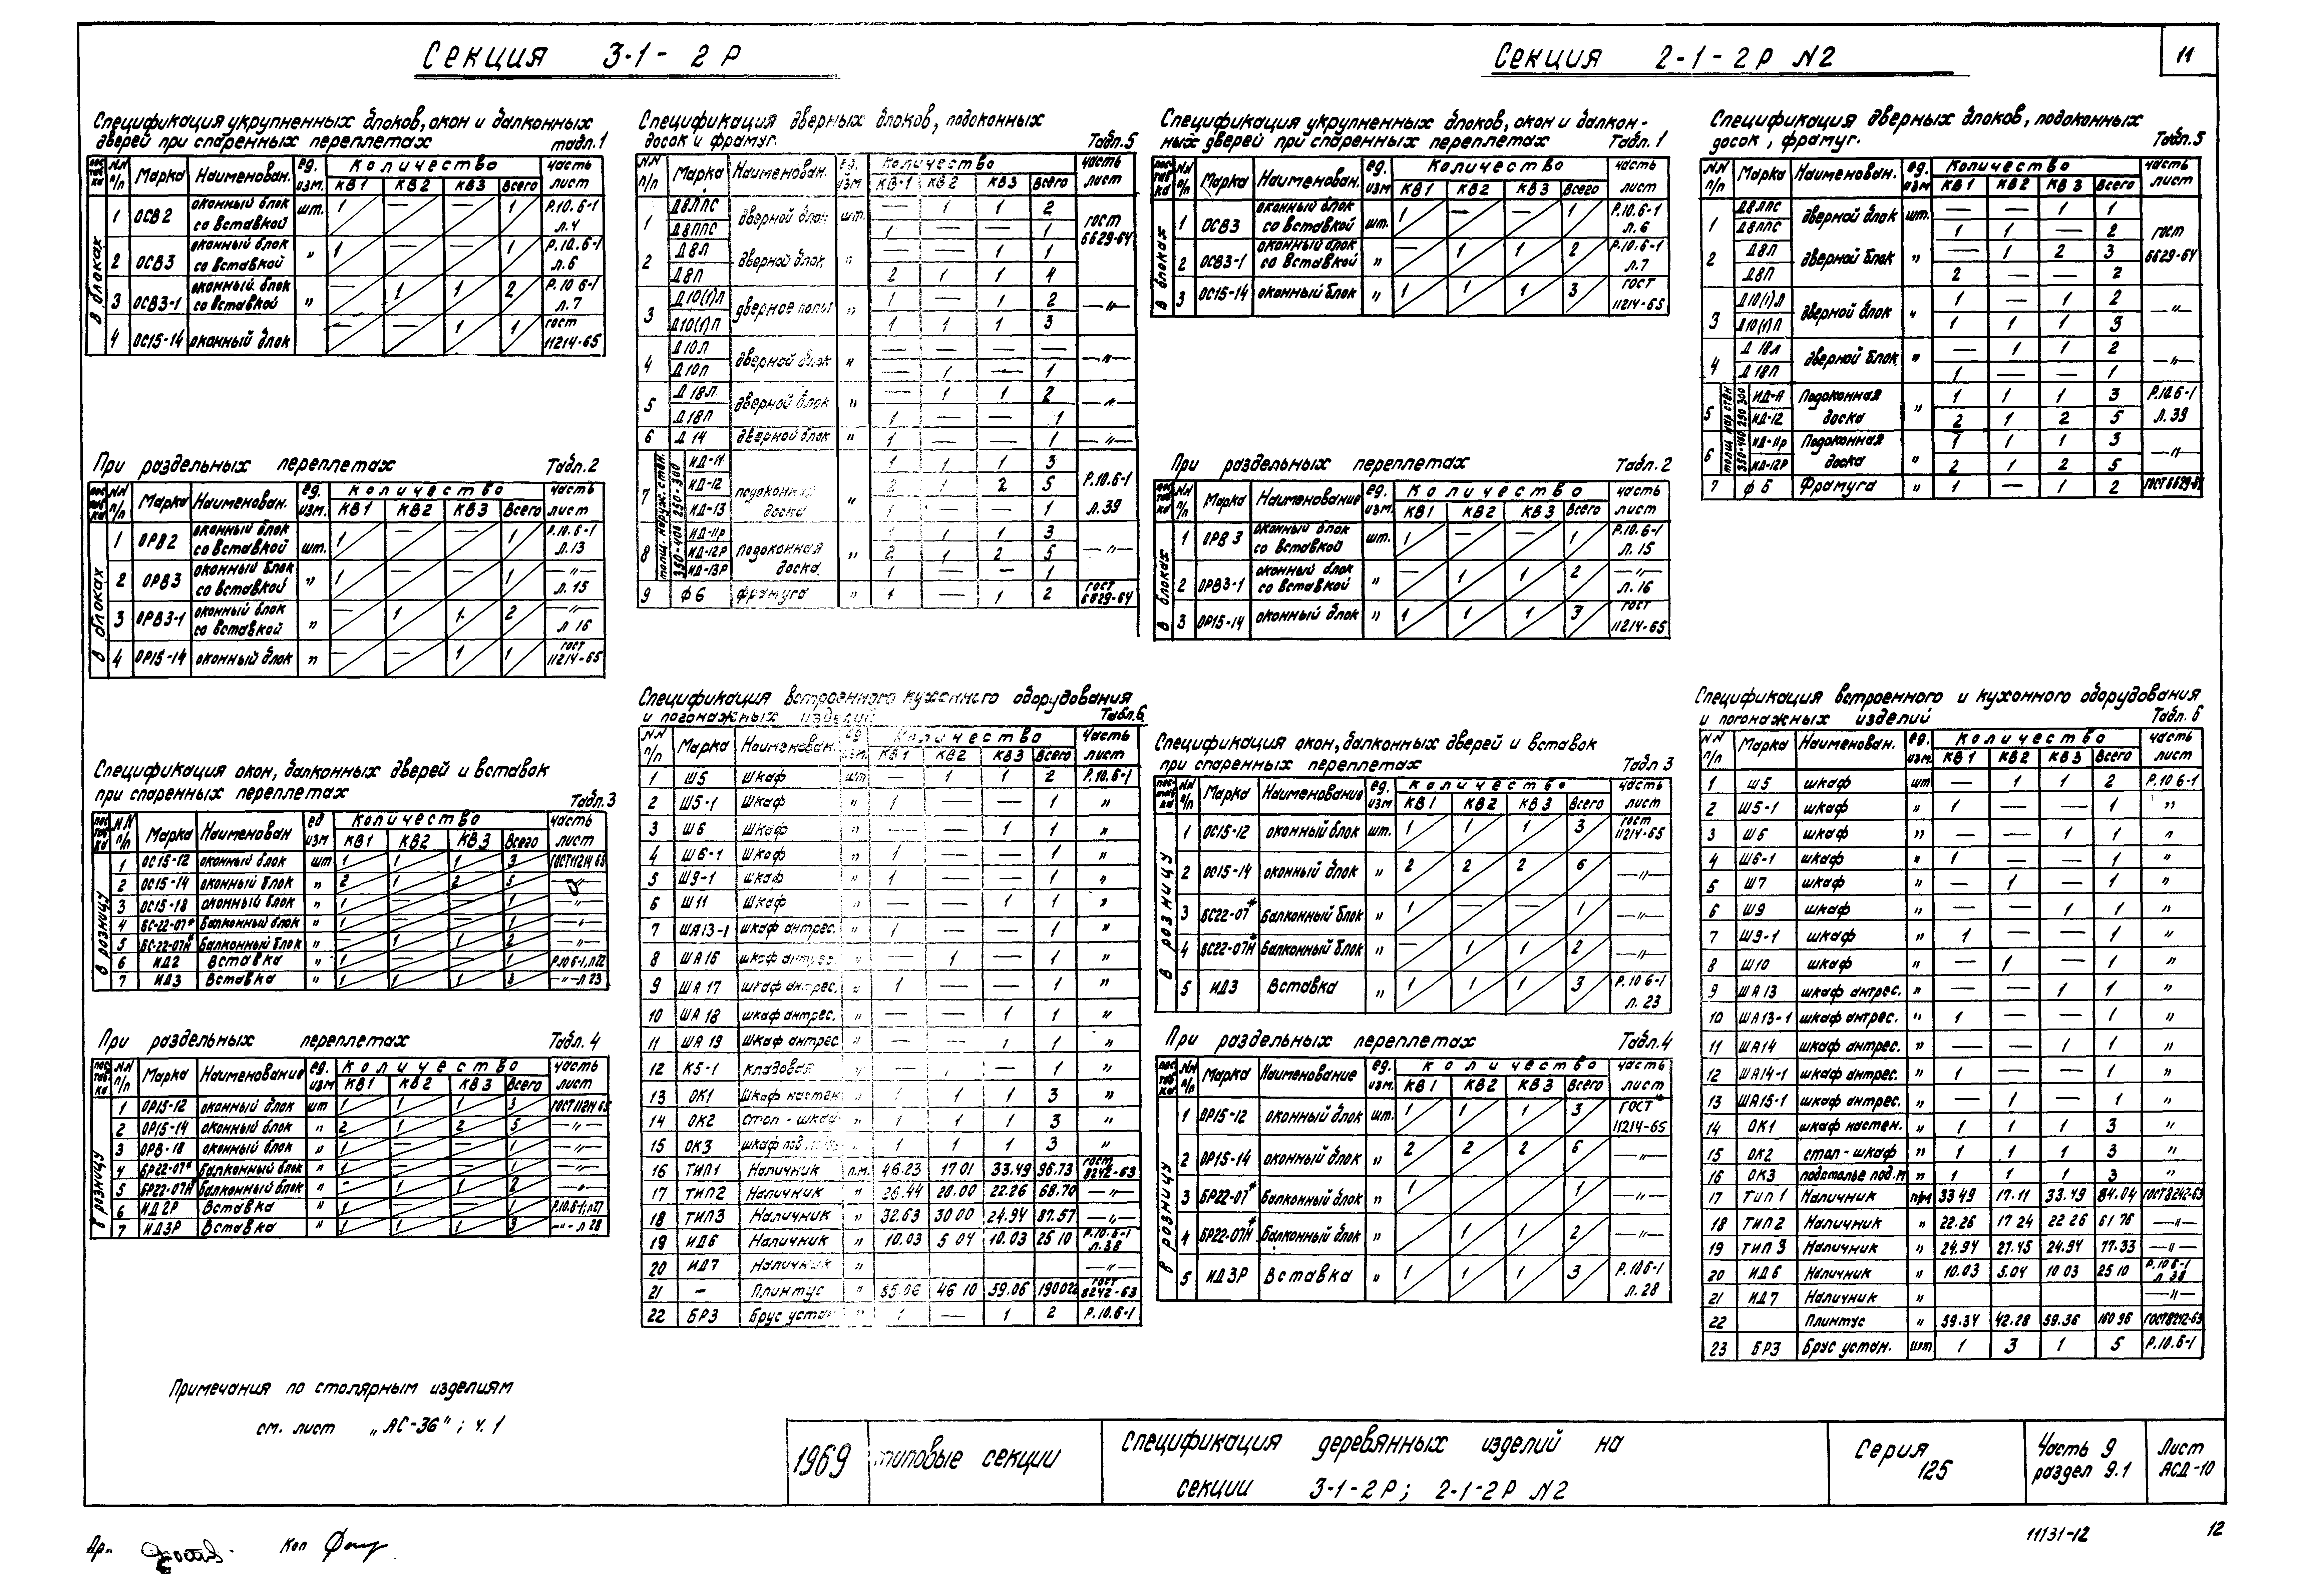 Секция 3-1-2Р
Секция 2-1-2Р N2
11
Спецификация укрупненных блоков, окон и балконных
дверей при спаренных переплетах табл.1
NN п/п Марка Наименован. ед. изм. Количество часть лист
КВ1 КВ2 КВ3 Всего
В блоках
1 ОСВ2 оконный блок со вставкой шт. 1 — — 1 Р.10.6-1 л.4
2 ОСВ3 оконный блок со вставкой " 1 — — 1 Р.10.6-1 л.6
3 ОСВ3-1 оконный блок со вставкой " — 1 1 2 Р.10 6-1 л.7
4 ОС15-14 оконный блок — — 1 1 гост 11214-65
При раздельных переплетах Табл.2
NN п/п Марка Наименован. ед. изм. Количество часть лист
КВ1 КВ2 КВ3 Всего
В блоках
1 ОРВ2 оконный блок со вставкой шт. 1 — — 1 Р.10.6-1 Л.13
2 ОРВ3 оконный блок со вставкой " 1 — — 1 —"— л.15
3 ОРВ3-1 оконный блок со вставкой " — 1 1 2 —"— л 16
4 ОР15-14 оконный блок " — — 1 1 гост 11214-65
Спецификация окон, балконных дверей и вставок
при спаренных переплетах Табл.3
NN п/п Марка Наименован ед изм Количество часть лист
КВ1 КВ2 КВ3 Всего
В розницу
1 ОС15-12 оконный блок шт 1 1 1 3 ГОСТ11214 65
2 ОС15-14 оконный блок " 2 1 2 5 —"—
3 ОС15-18 оконный блок " 1 — — 1 —"—
4 БС-22-07* балконный блок " 1 — — 1 —"—
5 БС-22-07Н* балконный блок " — 1 1 2 —"—
6 ИД2 Вставка " 1 — — 1 Р.10 6-1, л22
7 ИД3 Вставка " 1 1 1 3 —"— л 23
При раздельных переплетах Табл. 4
NN п/п Марка Наименование ед. изм Количество часть лист
КВ1 КВ2 КВ3 Всего
В розницу
1 ОР15-12 оконный блок шт 1 1 1 3 ГОСТ11214 65
2 ОР15-14 оконный блок " 2 1 2 5 —"—
3 ОР8-18 оконный блок " 1 — — 1 —"—
4 БР22-07* балконный блок " 1 — — 1 —"—
5 БР22-07Н* балконный блок " — 1 1 2 —"—
6 ИД2Р Вставка " 1 — — 1 Р.10.6-1; л27
7 ИД3Р Вставка " 1 1 1 3 —"— л 28
Примечания по столярным изделиям
см. лист „АС-36"; ч.1
Спецификация дверных блоков, подоконных
досок и фрамуг. Табл.5
NN п/п Марка Наименован. ед. изм Количество часть лист
КВ-1 КВ2 КВ3 Всего
1 Д8ЛПС дверной блок шт. — 1 1 2 гост 6629-64
Д8ППС 1 — — 1
2 Д8Л дверной блок " — — 1 1
Д8П 2 1 1 4
3 Д10(1)Л дверное полот " 1 — 1 2 —"—
Д10(1)П 1 1 1 3
4 Д10Л дверной блок " — — — — —"—
Д10П — 1 — 1
5 Д18Л дверной блок " — 1 1 2 —"—
Д18П 1 — — 1
6 Д14 дверной блок " 1 — — 1 —"—
толщ. наруж. стен.
7 250-300 ИД-11 подоконная доска " 1 1 1 3 Р.10.6-1 л.39
ИД-12 2 1 2 5
ИД-13 1 — — 1
8 350-400 ИД-11р подоконная доска " 1 1 1 3 —"—
ИД-12Р 2 1 2 5
ИД-13Р 1 — — 1
9 ф6 фрамуга " 1 — 1 2 гост 6629-64
Спецификация встроенного кухонного оборудования
и погонажных изделий Табл.6
NN п/п Марка Наименован. ед изм. Количество часть лист
КВ1 КВ2 КВ3 Всего
1 Ш5 шкаф шт — 1 1 2 Р.10.6-1
2 Ш5-1 шкаф " 1 — — 1 "
3 Ш6 шкаф " — — 1 1 "
4 Ш6-1 шкаф " 1 — — 1 "
5 Ш9-1 шкаф " 1 — — 1 "
6 Ш11 шкаф " — — 1 1 "
7 ША13-1 шкаф антрес. " 1 — — 1 "
8 ША16 шкаф антрес. " — 1 — 1 "
9 ША17 шкаф антрес. " 1 — — 1 "
10 ША18 шкаф антрес. " — — 1 1 "
11 ША19 шкаф антрес " — — 1 1 "
12 К5-1 кладовая " — — 1 "
13 ОК1 шкаф настен " 1 1 1 3 "
14 ОК2 стол-шкаф " 1 1 1 3 "
15 ОК3 шкаф под " 1 1 1 3 "
16 ТИП1 Наличник п.м. 46.23 17 01 33.49 96.73 гост 8242-63
17 ТИП2 Наличник " 26.44 20.00 22.26 68.70 —"—
18 ТИП3 Наличник " 32.63 30 00 24.94 87.57 —"—
19 ИД6 Наличник " 10.03 5 04 10.03 25 10 Р.10.6-1 л.38
20 ИД7 Наличник " —"—
21 — Плинтус " 85.06 46 10 59.06 гост 8242-63
22 БР3 брус устан " 1 — 1 2 Р.10.6-1
Спецификация укрупненных блоков, окон и балкон-
ных дверей при спаренных переплетах Табл. 1
NN п/п Марка Наименован. ед. изм Количество часть лист
КВ1 КВ2 КВ3 Всего
В блоках
1 ОСВ3 оконный блок со вставкой шт. 1 — — 1 Р.10.6-1 л.6
2 ОСВ3-1 оконный блок со вставкой " — 1 1 2 Р.10.6-1 л.7
3 ОС15-14 оконный блок " 1 1 1 3 ГОСТ 11214-65
При раздельных переплетах Табл.2
NN п/п Марка Наименование ед. изм. Количество часть лист
КВ1 КВ2 КВ3 Всего
В блоках
1 ОРВ3 оконный блок со вставкой шт. 1 — — 1 Р.10.6-1 Л.15
2 ОРВ3-1 оконный блок со вставкой " — 1 1 2 —"— л.16
3 ОР15-14 оконный блок " 1 1 1 3 ГОСТ 11214-65
Спецификация окон, балконных дверей и вставок
при спаренных переплетах Табл 3
NN п/п Марка Наименование ед. изм Количество часть лист
КВ1 КВ2 КВ3 Всего
В розницу
1 ОС15-12 оконный блок шт. 1 1 1 3 гост 11214-65
2 ОС15-14 оконный блок " 2 2 2 6 —"—
3 БС22-07* балконный блок " 1 — — 1 —"—
4 БС22-07Н* балконный блок " — 1 1 2 —"—
5 ИД3 Вставка " 1 1 1 3 Р.10 6-1 л.23
При раздельных переплетах Табл.4
NN п/п Марка Наименование ед. изм. Количество часть лист
КВ1 КВ2 КВ3 Всего
В розницу
1 ОР15-12 оконный блок шт. 1 1 1 3 ГОСТ 11214-65
2 ОР15-14 оконный блок " 2 2 2 6 —"—
3 БР22-07* балконный блок " 1 1 —"—
4 БР22-07Н* балконный блок " 1 1 2 —"—
5 ИД3Р Вставка " 1 1 1 3 Р.10 6-1 л.28
Спецификация дверных блоков, подоконных
досок, фрамуг. Табл.5
NN п/п Марка Наименован. ед. изм Количество часть лист
КВ1 КВ2 КВ3 Всего
1 Д8ЛПС дверной блок шт. — — 1 1 гост 6629-64
Д8ППС 1 1 — 2
2 Д8Л дверной блок " — 1 2 3
Д8П 2 — — 2
3 Д10(1)Л дверной блок " 1 — 1 2 —"—
Д10(1)П 1 1 1 3
4 Д18Л дверной блок " — 1 1 2 —"—
Д18П 1 — — 1
толщ нар стен
5 250 300 ИД-11 Подоконная доска " 1 1 1 3 Р.10.6-1 Л.39
ИД-12 2 1 2 5
6 350-400 ИД-11р Подоконная доска " 1 1 1 3
ИД-12Р 2 1 2 5
7 ф6 Фрамуга " 1 — 1 2 ГОСТ6629-64
Спецификация встроенного и кухонного оборудования
и погонажных изделий Табл. 6
NN п/п Марка Наименован. ед. изм. Количество часть лист
КВ1 КВ2 КВ3 Всего
1 Ш5 шкаф шт — 1 1 2 Р.10 6-1
2 Ш5-1 шкаф " 1 — — 1 "
3 Ш6 шкаф " — — 1 1 "
4 Ш6-1 шкаф " 1 — — 1 "
5 Ш7 шкаф " — 1 — 1 "
6 Ш9 шкаф " — — 1 1 "
7 Ш9-1 шкаф " 1 — — 1 "
8 Ш10 шкаф " — 1 — 1 "
9 ША13 шкаф антрес. " — — 1 1 "
10 ША13-1 шкаф антрес. " 1 — — 1 "
11 ША14 шкаф антрес. " — — 1 1 "
12 ША14-1 шкаф антрес. " 1 — — 1 "
13 ША15-1 шкаф антрес. " — 1 — 1 "
14 ОК1 шкаф настен. " 1 1 1 3 "
15 ОК2 стол-шкаф " 1 1 1 3 "
16 ОК3 подстолье под.м " 1 1 1 3 "
17 Тип 1 Наличник п/м 33 49 17.11 33.49 84.04 ГОСТ8242-63
18 ТИП 2 Наличник " 22.26 17 24 22 26 61 76 —"—
19 ТИП 3 Наличник " 24.94 27.45 24.94 77.33 —"—
20 ИД6 Наличник " 10.03 5.04 10 03 25 10 Р.10 6-1 л 38
21 ИД7 Наличник " —"—
22 Плинтус " 59.34 42.28 59.36 160 96 ГОСТ8242-63
23 БР3 брус устан. шт 1 3 1 5 Р.10.6-1
1969
типовые секции
Спецификация деревянных изделий на
секции 3-1-2Р; 2-1-2Р N2
Серия 125
Часть 9 раздел 9.1
Лист АСД-10
Коп
11131-12
12